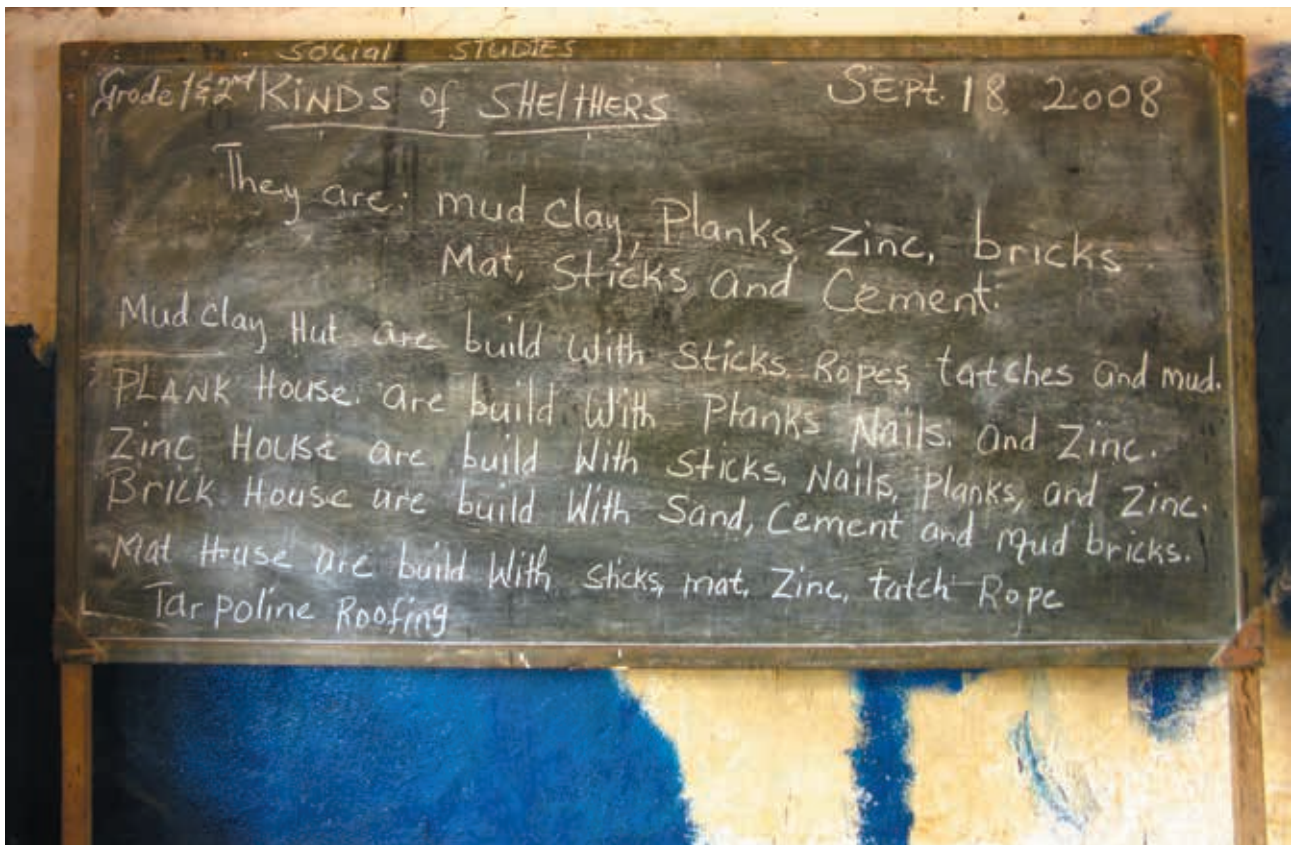 Social STUDIES
Grade 1 & 2nd KINDS of SHELTHERS SEPt. 18, 2008
They are: mud clay, Planks, Zinc, bricks.
Mat, Sticks and Cement:
Mud clay Hut are build With Sticks, Ropes, tatches and mud.
PLANK House. are build With Planks Nails. and Zinc.
Zinc House are build With Sticks, Nails, Planks, and Zinc.
Brick House are build With Sand, Cement and Mud bricks.
Mat House are build With sticks, mat, Zinc, tatch Rope
Tarpoline Roofing